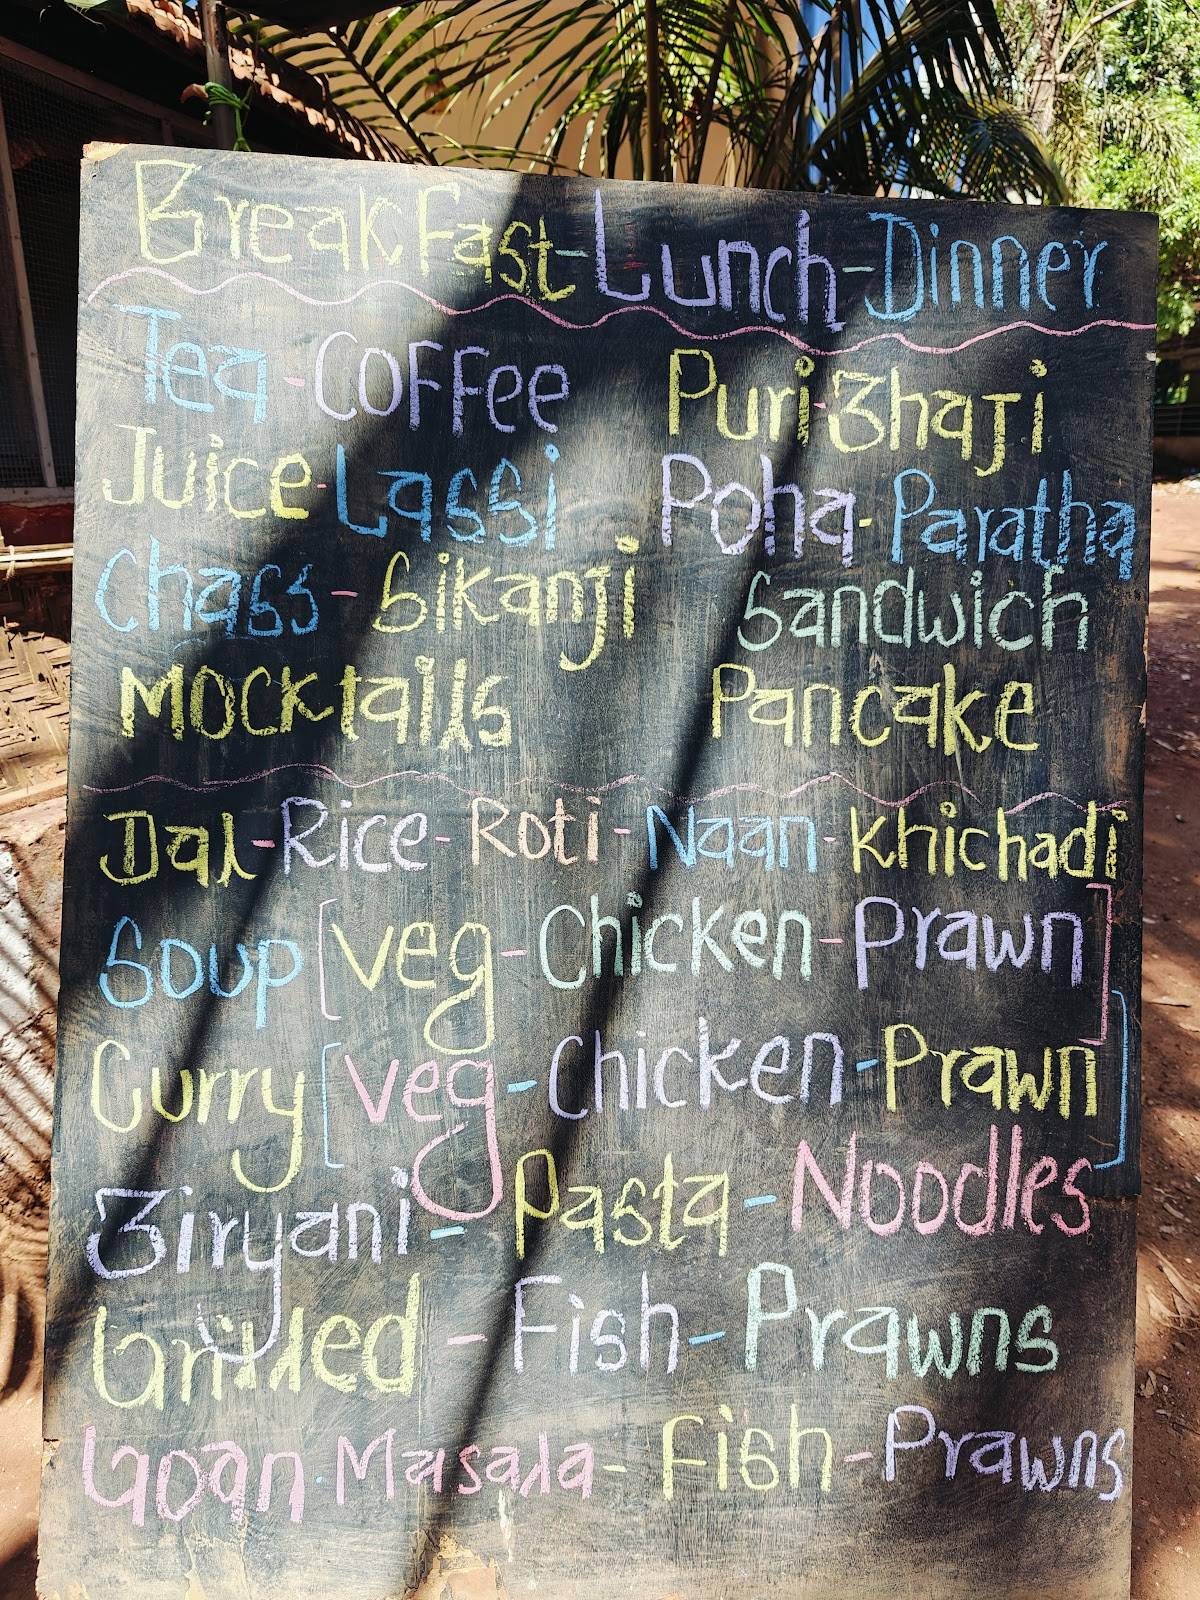 BreakFast-Lunch-Dinner
Tea-Coffee
Juice-Lassi
Chass-Sikanji
Mocktails
Puri-Bhaji
Poha-Paratha
Sandwich
Pancake
Dal-Rice-Roti-Naan-Khichadi
Soup [Veg-Chicken-Prawn]
Curry [Veg-Chicken-Prawn]
Biryani-Pasta-Noodles
Grilled-Fish-Prawns
Goan-Masala-Fish-Prawns